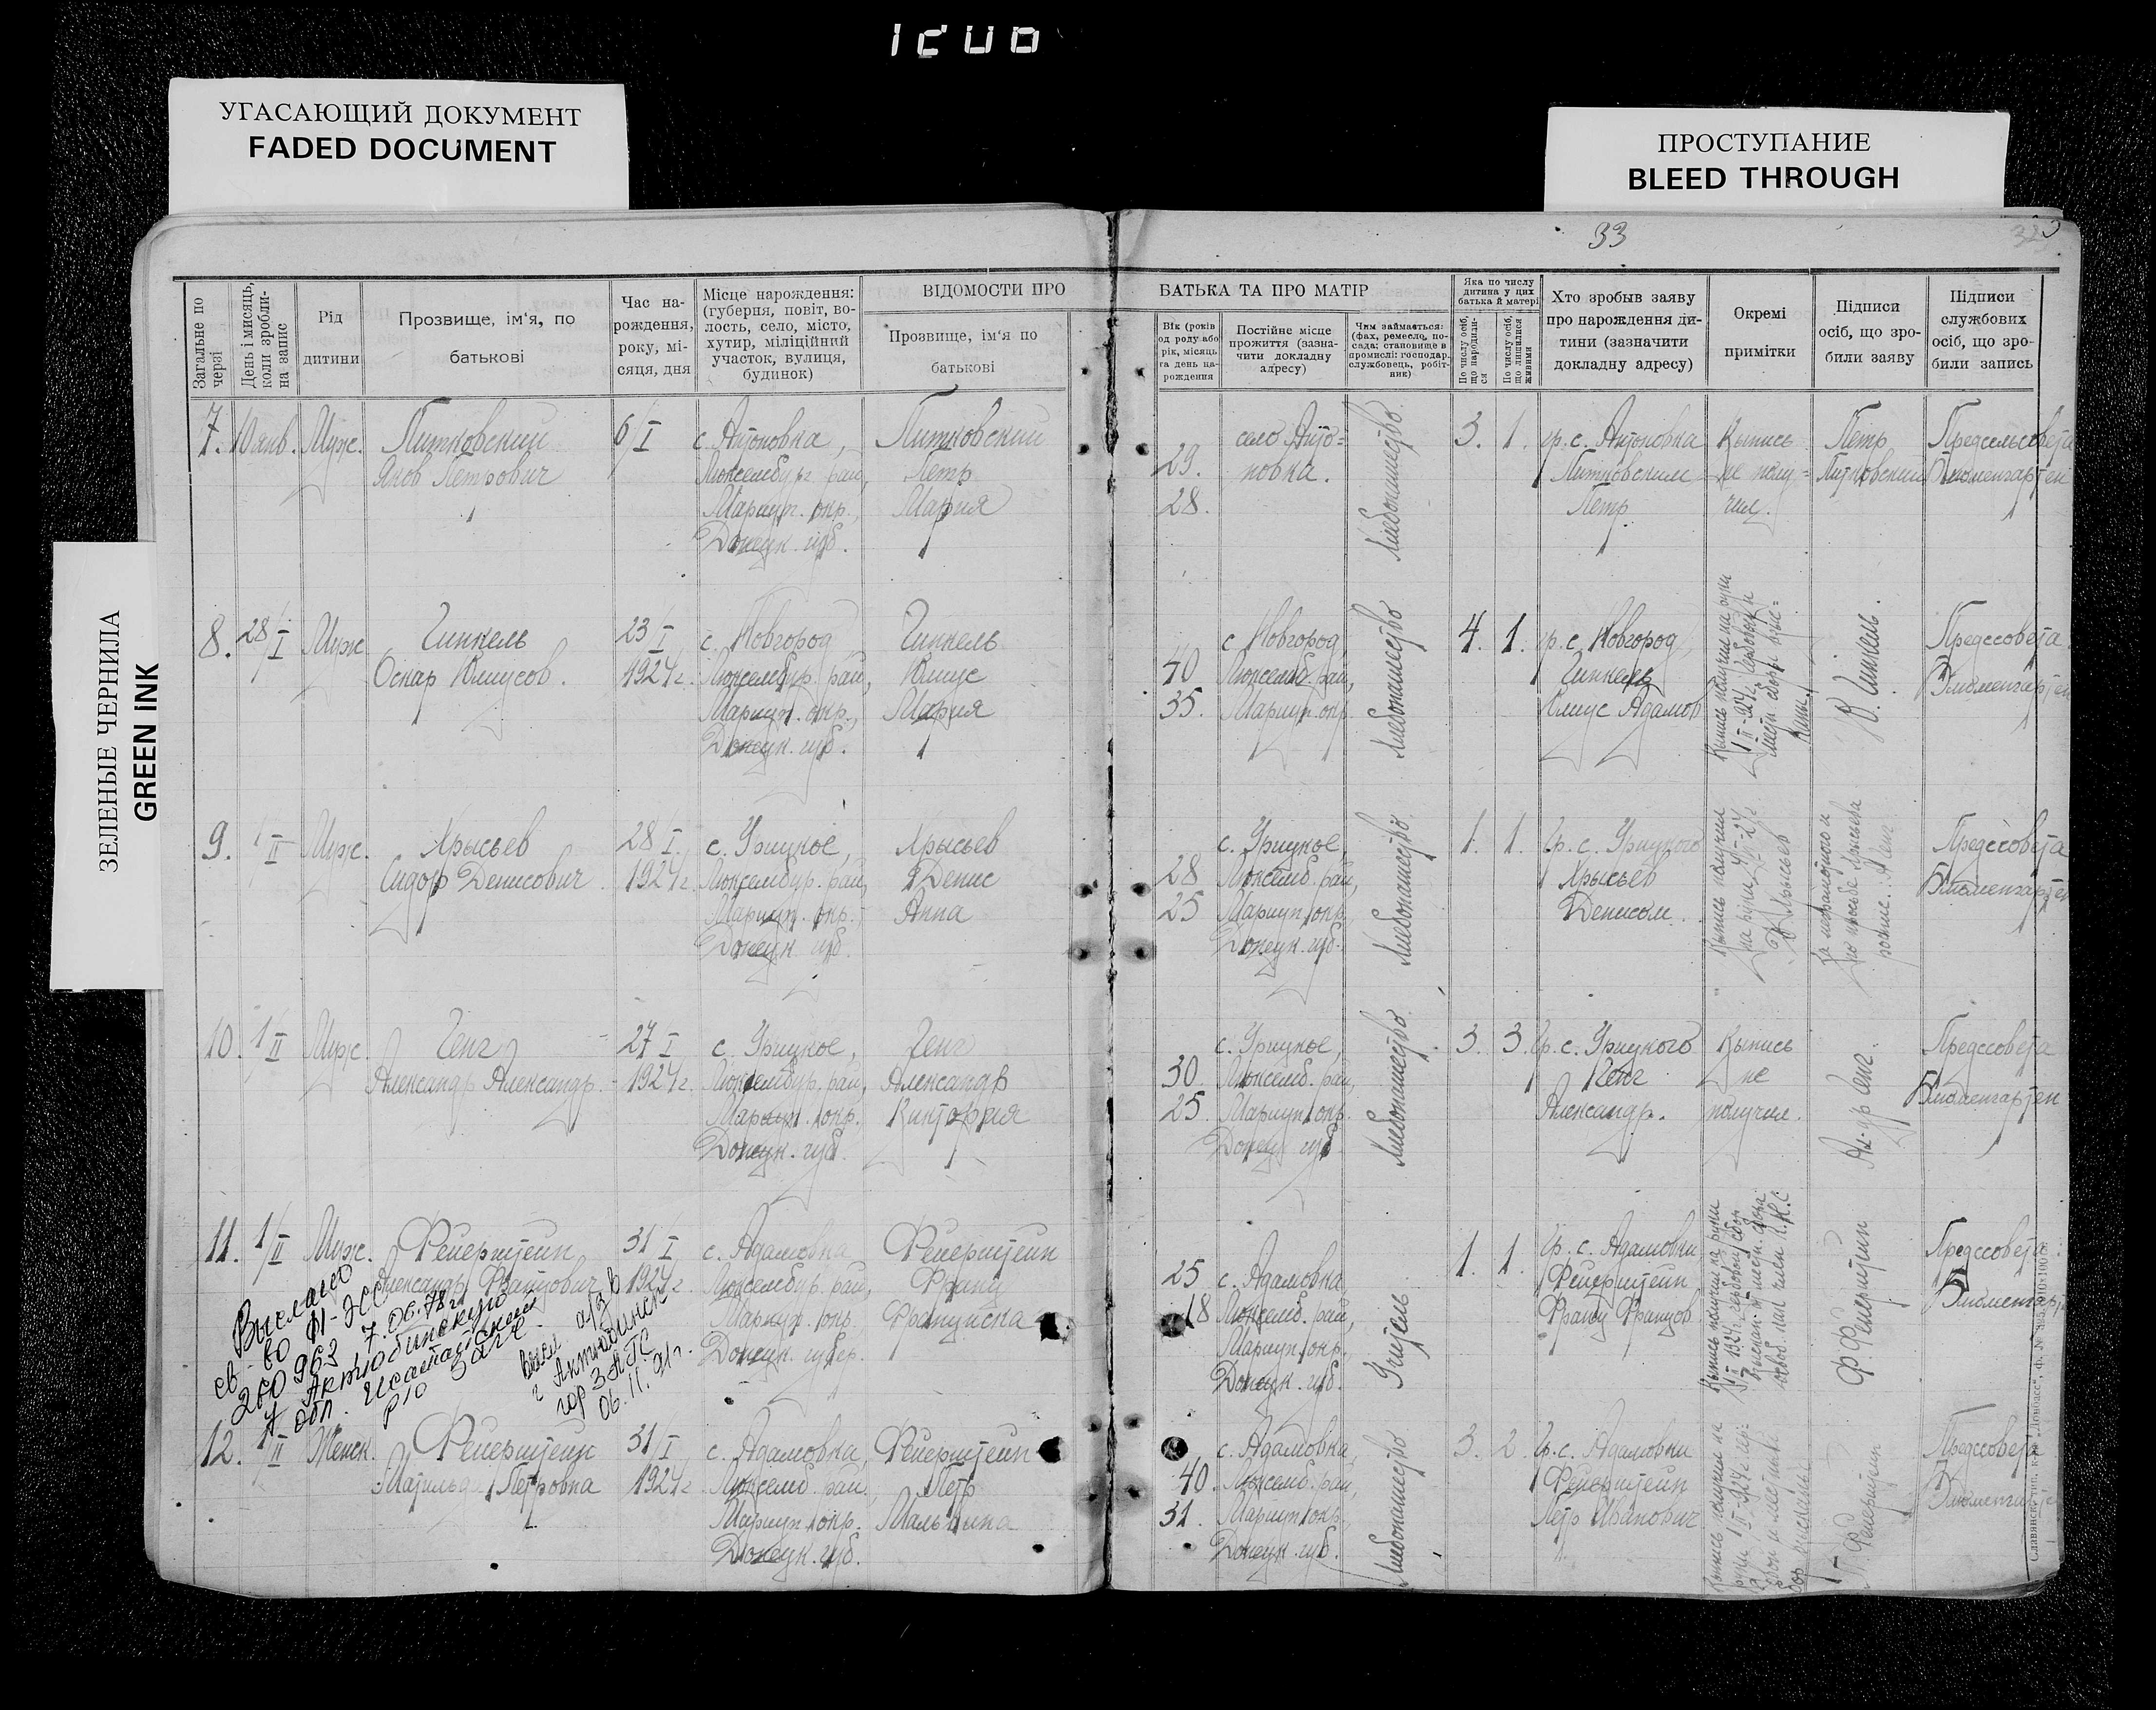 УГАСАЮЩИЙ ДОКУМЕНТ
FADED DOCUMENT
ПРОСТУПАНИЕ
BLEED THROUGH
ЗЕЛЕНЫЕ ЧЕРНИЛА
GREEN INK
33
Загальне по черзі
День і мисяць, коли зробли- на запис
Рід дитини
Прозвище, ім‘я, по батькові
Час на- рождення, року, мі- сяця, дня
Місце нарождення: (губерня, повіт, во- лость, село, місто, хутир, міліційний участок, вулиця, будинок)
ВІДОМОСТИ ПРО БАТЬКА ТА ПРО МАТІР
Прозвище, ім‘я по батькові
Вік (років од роду або рік, місяць та день на- рождення
Постійне місце прожиття (зазна- чити докладну адресу)
Чим займається: (фах, ремесло, по- сада; становище в промислі: господар, службовець, робіт- ник)
Яка по числу дитина у цих батька й матері
По числу осіб, що народили- ся
По числу осіб, що лишилися живими
Хто зробыв заяву про нарождення ди- тини (зазначити докладну адресу)
Окремі примітки
Підписи осіб, що зро- били заяву
Підписи службових осіб, що зро- били запись
7. 10 янв. Муж.
Литковский
Яков Петрович
6/I
с. Антоновка,
Люксембург. рай,
Мариуп. окр.,
Донецк. губ.
Литковский
Петр
Мария
29.
28.
село Анто=
новка.
Хлебопашество
3. 1.
гр. с. Антоновка
Литковским
Петр
Выпись
не полу=
чил.
Петр
Литковский
Предсельсовета
Блюменгартен
8. 28/I Муж
Гиппель
Оскар Юлиусов.
23 I
1924 г.
с. Новгород
Люксембур. рай,
Мариуп. окр.,
Донецк. губ.
Гиппель
Юлиус
Мария
40
35.
с Новгород,
Люксемб. рай,
Мариуп. окр
Хлебопашество
4. 1.
гр. с. Новгород,
Гиппель
Юлиус Адамов
Выпись получил на руки
Предссовета
Блюменгартен
9. 1/II Муж.
Хрысьев
Сидор Денисович
28 I
1924 г.
с. Урицкое,
Люксембур. рай,
Мариуп. окр.,
Донецк. губ.
Хрысьев
Денис
Анна
28
25
с. Урицкое,
Люксемб. рай,
Мариуп. окр.
Донецк. губ.
Хлебопашество
1. 1.
Гр. с. Урицкого
Хрысьев
Денисом.
Выпись получил
на руки
Хрысьев
За неграмотного и
по просьбе Хрысьева
Предссовета
Блюменгартен
10. 1/II Муж
Генг
Александр Александр.
27 I
1924 г.
с. Урицкое,
Люксембур. рай,
Мариуп. окр.,
Донецк. губ.
Генг
Александр
Виктория
30.
25.
с. Урицкое,
Люксемб. рай,
Мариуп. окр.
Донец. губ
Хлебопашество
3. 3.
Гр. с. Урицкого
Генг
Александр.
Выпись
не
получил.
Ал-др Генг.
Предссовета
Блюменгартен
11. 1/II Муж.
Фейерштейн
Александр Францович
31 I
1924 г
с. Адамовка
Люксембур. рай,
Мариуп. окр.
Донецк. губер.
Фейерштейн
Франц
Француска
25
18
с. Адамовка,
Люксемб. рай,
Мариуп. окр.
Донецк. губ.
Учитель
1. 1.
Гр. с. Адамовки,
Фейерштейн
Франц Францов
Выпись получил на руки
Ф Фейерштейн
Предссовета
Выслано
св-во
260963 7.06.78г
Актюбинскую
обл.
р/о ЗАГС.
г Актюбинск
гор ЗАГС
06.11.91г.
12. 1/II Женск.
Фейерштейн
Матильда Петровна
31/I
1924 г
с. Адамовка,
Люксемб. рай.,
Мариуп. окр.
Донецк. губ.
Фейерштейн
Петр
Мальвина
40.
31.
с. Адамовка,
Люксемб. рай,
Мариуп. окр.
Донецк. губ.
Хлебопашество
3. 2
Гр. с. Адамовки
Фейерштейн
Петр Иванович
Выпись получил на
П. Фейерштейн
Предссовета